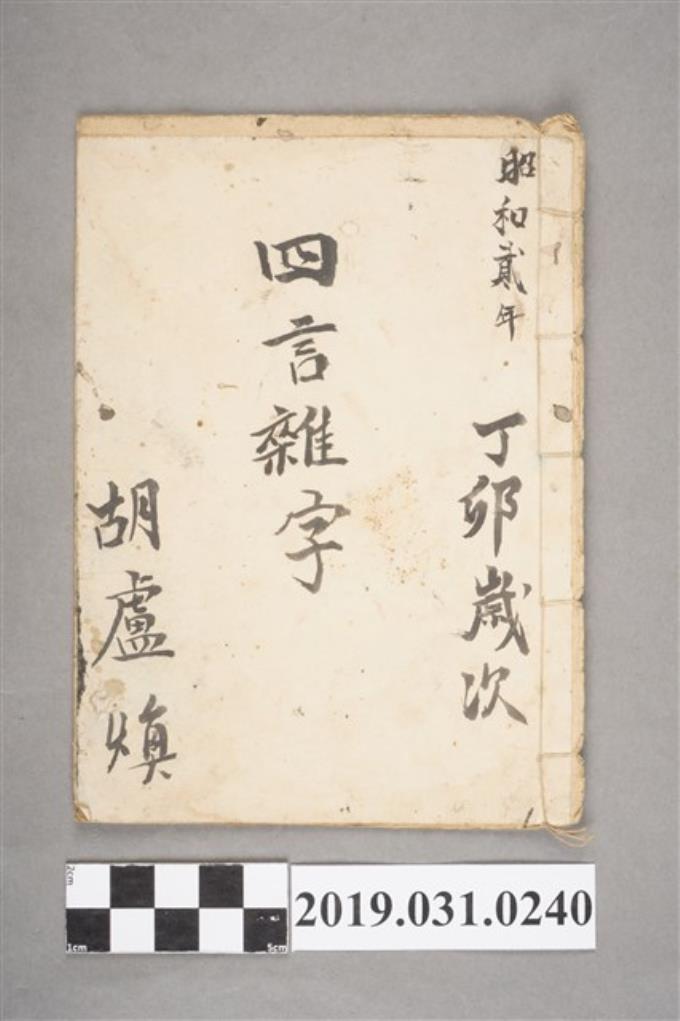 昭和貳年
丁卯歲次
四言雜字
胡盧煥
2cm
1cm
5cm
2019.031.0240